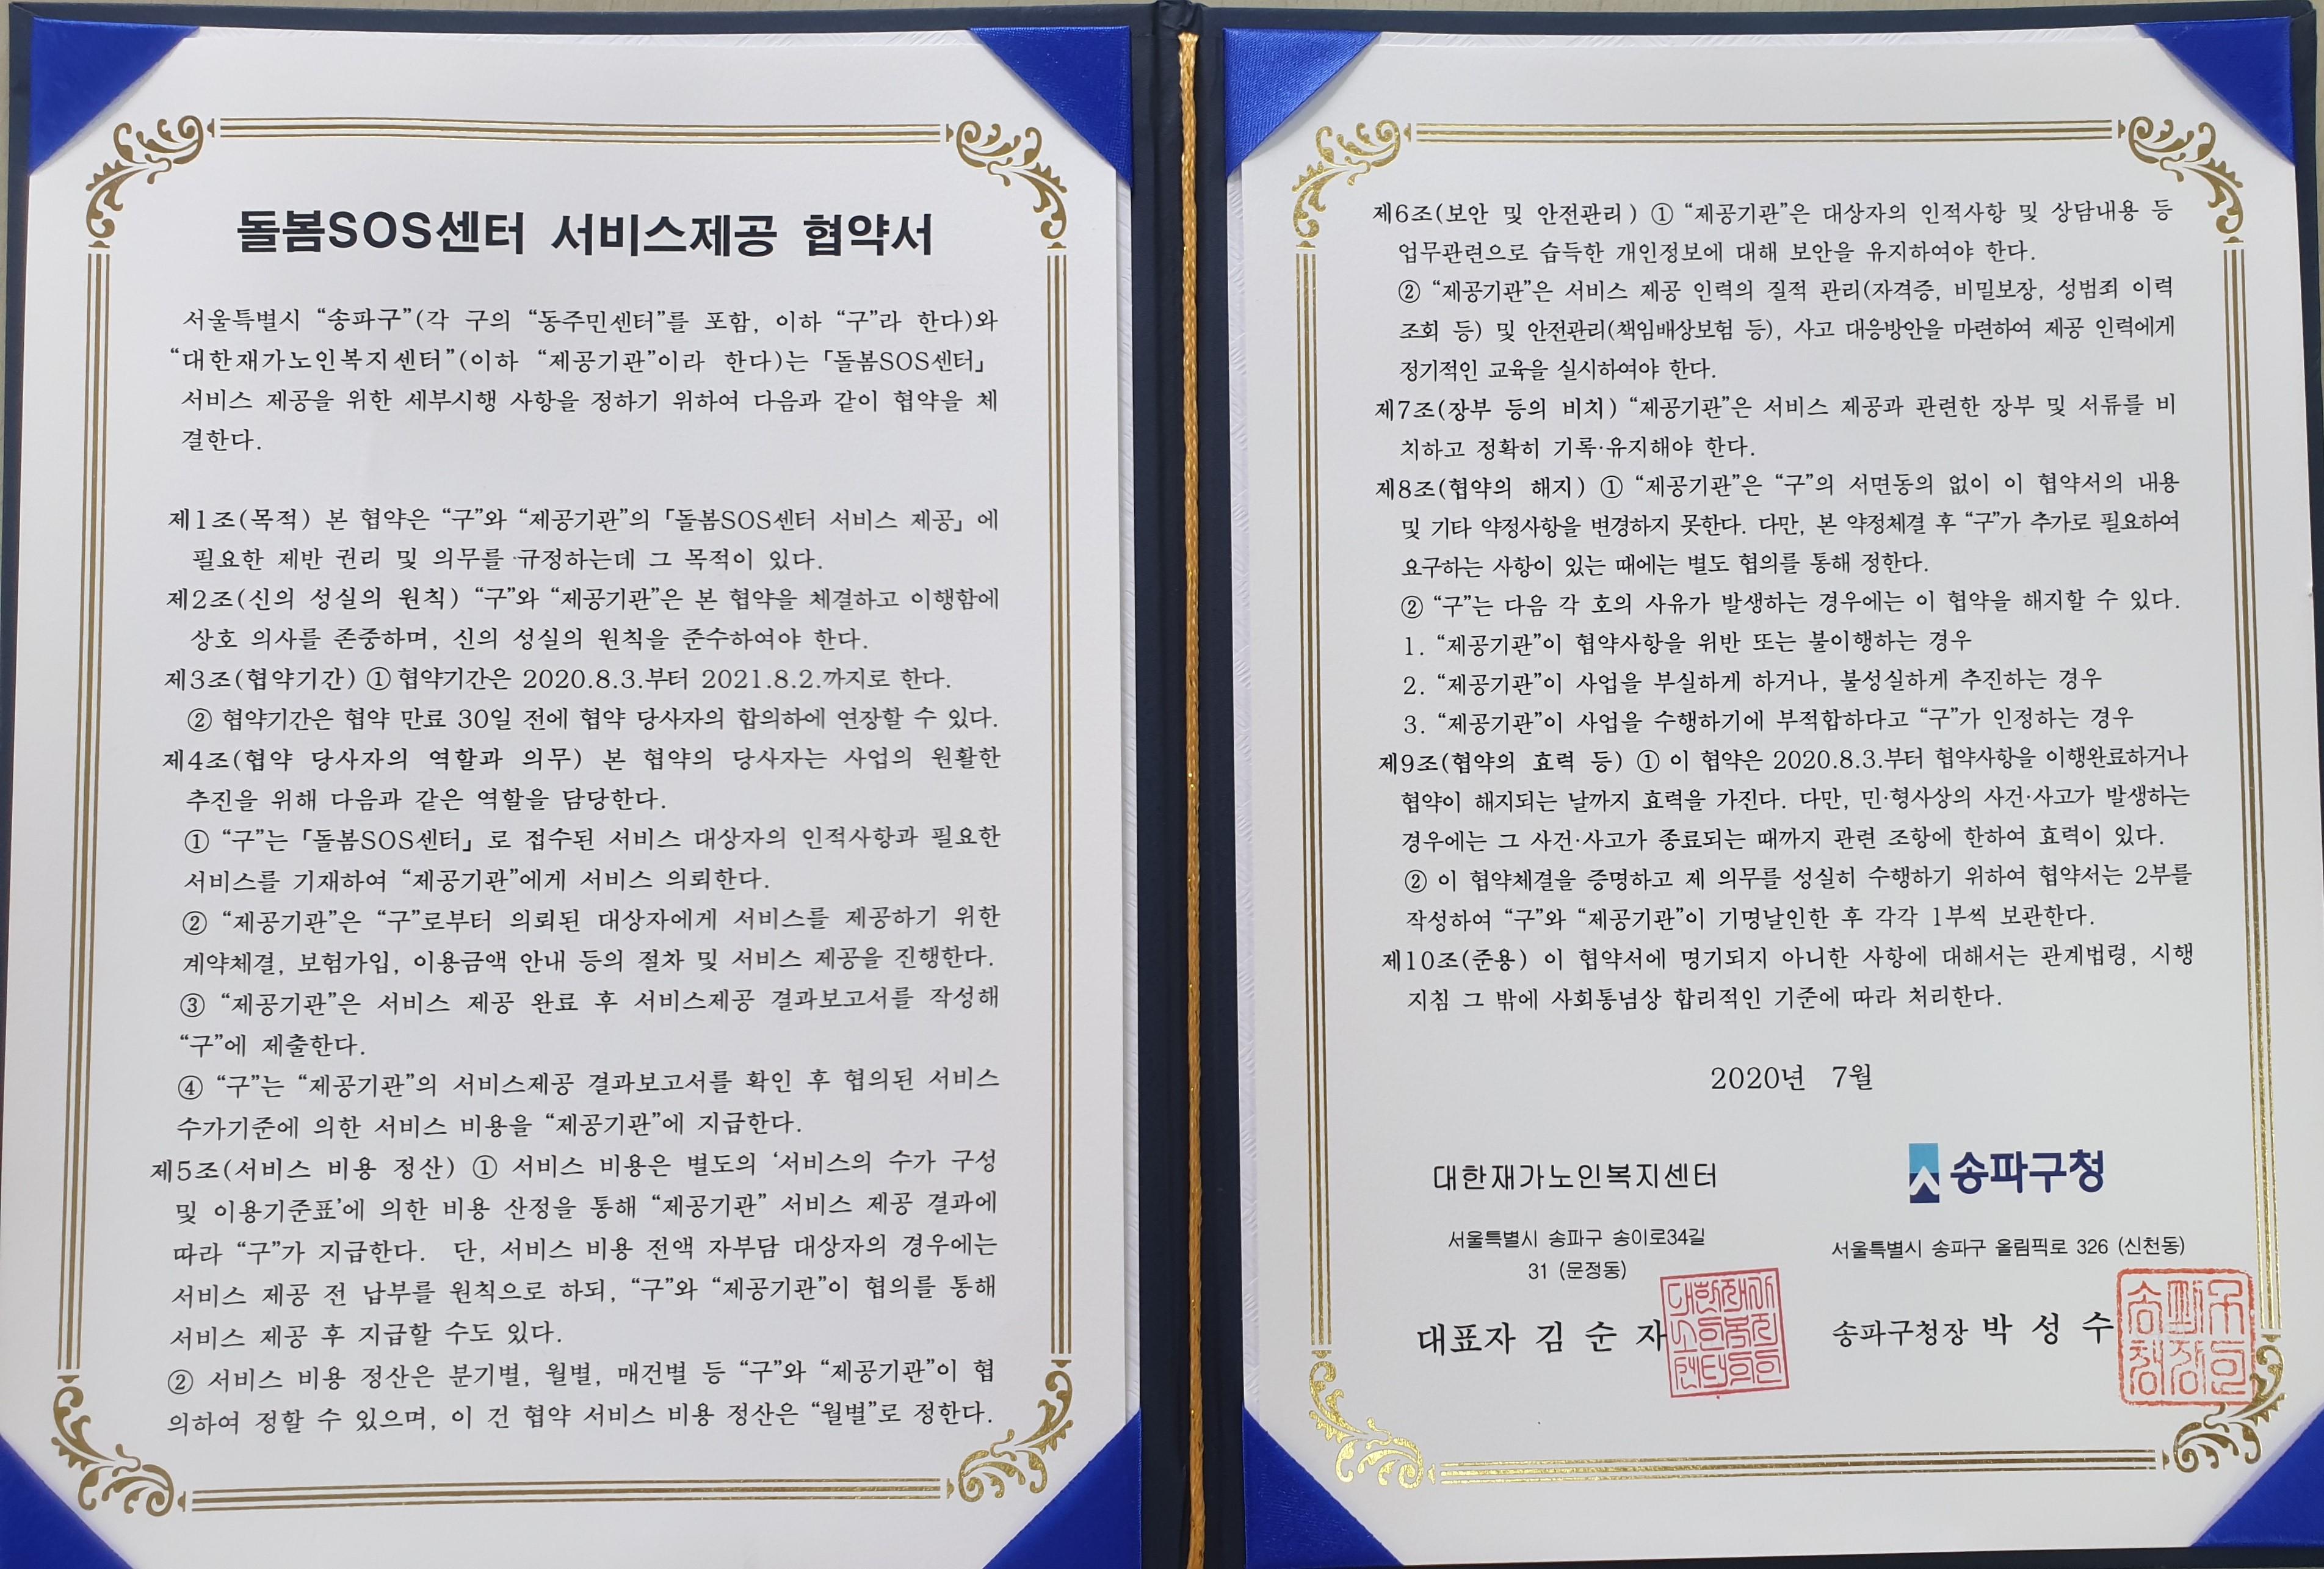 돌봄SOS센터 서비스제공 협약서
서울특별시 “송파구”(각 구의 “동주민센터”를 포함, 이하 “구”라 한다)와
“대한재가노인복지센터”(이하 “제공기관”이라 한다)는「돌봄SOS센터」
서비스 제공을 위한 세부시행 사항을 정하기 위하여 다음과 같이 협약을 체
결한다.
제1조(목적) 본 협약은 “구”와 “제공기관”의「돌봄SOS센터 서비스 제공」에
필요한 제반 권리 및 의무를 규정하는데 그 목적이 있다.
제2조(신의 성실의 원칙) “구”와 “제공기관”은 본 협약을 체결하고 이행함에
상호 의사를 존중하며, 신의 성실의 원칙을 준수하여야 한다.
제3조(협약기간) ① 협약기간은 2020.8.3.부터 2021.8.2.까지로 한다.
② 협약기간은 협약 만료 30일 전에 협약 당사자의 합의하에 연장할 수 있다.
제4조(협약 당사자의 역할과 의무) 본 협약의 당사자는 사업의 원활한
추진을 위해 다음과 같은 역할을 담당한다.
① “구”는「돌봄SOS센터」로 접수된 서비스 대상자의 인적사항과 필요한
서비스를 기재하여 “제공기관”에게 서비스 의뢰한다.
② “제공기관”은 “구”로부터 의뢰된 대상자에게 서비스를 제공하기 위한
계약체결, 보험가입, 이용금액 안내 등의 절차 및 서비스 제공을 진행한다.
③ “제공기관”은 서비스 제공 완료 후 서비스제공 결과보고서를 작성해
“구”에 제출한다.
④ “구”는 “제공기관”의 서비스제공 결과보고서를 확인 후 협의된 서비스
수가기준에 의한 서비스 비용을 “제공기관”에 지급한다.
제5조(서비스 비용 정산) ① 서비스 비용은 별도의 ‘서비스의 수가 구성
및 이용기준표’에 의한 비용 산정을 통해 “제공기관” 서비스 제공 결과에
따라 “구”가 지급한다. 단, 서비스 비용 전액 자부담 대상자의 경우에는
서비스 제공 전 납부를 원칙으로 하되, “구”와 “제공기관”이 협의를 통해
서비스 제공 후 지급할 수도 있다.
② 서비스 비용 정산은 분기별, 월별, 매건별 등 “구”와 “제공기관”이 협
의하여 정할 수 있으며, 이 건 협약 서비스 비용 정산은 “월별”로 정한다.
제6조(보안 및 안전관리) ① “제공기관”은 대상자의 인적사항 및 상담내용 등
업무관련으로 습득한 개인정보에 대해 보안을 유지하여야 한다.
② “제공기관”은 서비스 제공 인력의 질적 관리(자격증, 비밀보장, 성범죄 이력
조회 등) 및 안전관리(책임배상보험 등), 사고 대응방안을 마련하여 제공 인력에게
정기적인 교육을 실시하여야 한다.
제7조(장부 등의 비치) “제공기관”은 서비스 제공과 관련한 장부 및 서류를 비
치하고 정확히 기록·유지해야 한다.
제8조(협약의 해지) ① “제공기관”은 “구”의 서면동의 없이 이 협약서의 내용
및 기타 약정사항을 변경하지 못한다. 다만, 본 약정체결 후 “구”가 추가로 필요하여
요구하는 사항이 있는 때에는 별도 협의를 통해 정한다.
② “구”는 다음 각 호의 사유가 발생하는 경우에는 이 협약을 해지할 수 있다.
1. “제공기관”이 협약사항을 위반 또는 불이행하는 경우
2. “제공기관”이 사업을 부실하게 하거나, 불성실하게 추진하는 경우
3. “제공기관”이 사업을 수행하기에 부적합하다고 “구”가 인정하는 경우
제9조(협약의 효력 등) ① 이 협약은 2020.8.3.부터 협약사항을 이행완료하거나
협약이 해지되는 날까지 효력을 가진다. 다만, 민·형사상의 사건·사고가 발생하는
경우에는 그 사건·사고가 종료되는 때까지 관련 조항에 한하여 효력이 있다.
② 이 협약체결을 증명하고 제 의무를 성실히 수행하기 위하여 협약서는 2부를
작성하여 “구”와 “제공기관”이 기명날인한 후 각각 1부씩 보관한다.
제10조(준용) 이 협약서에 명기되지 아니한 사항에 대해서는 관계법령, 시행
지침 그 밖에 사회통념상 합리적인 기준에 따라 처리한다.
2020년 7월
대한재가노인복지센터
서울특별시 송파구 송이로34길
31 (문정동)
대표자 김 순 자
송파구청
서울특별시 송파구 올림픽로 326 (신천동)
송파구청장 박 성 수